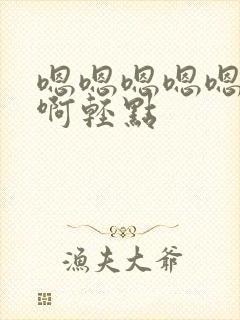 嗯嗯嗯嗯嗯
啊輕點
漁夫大爺